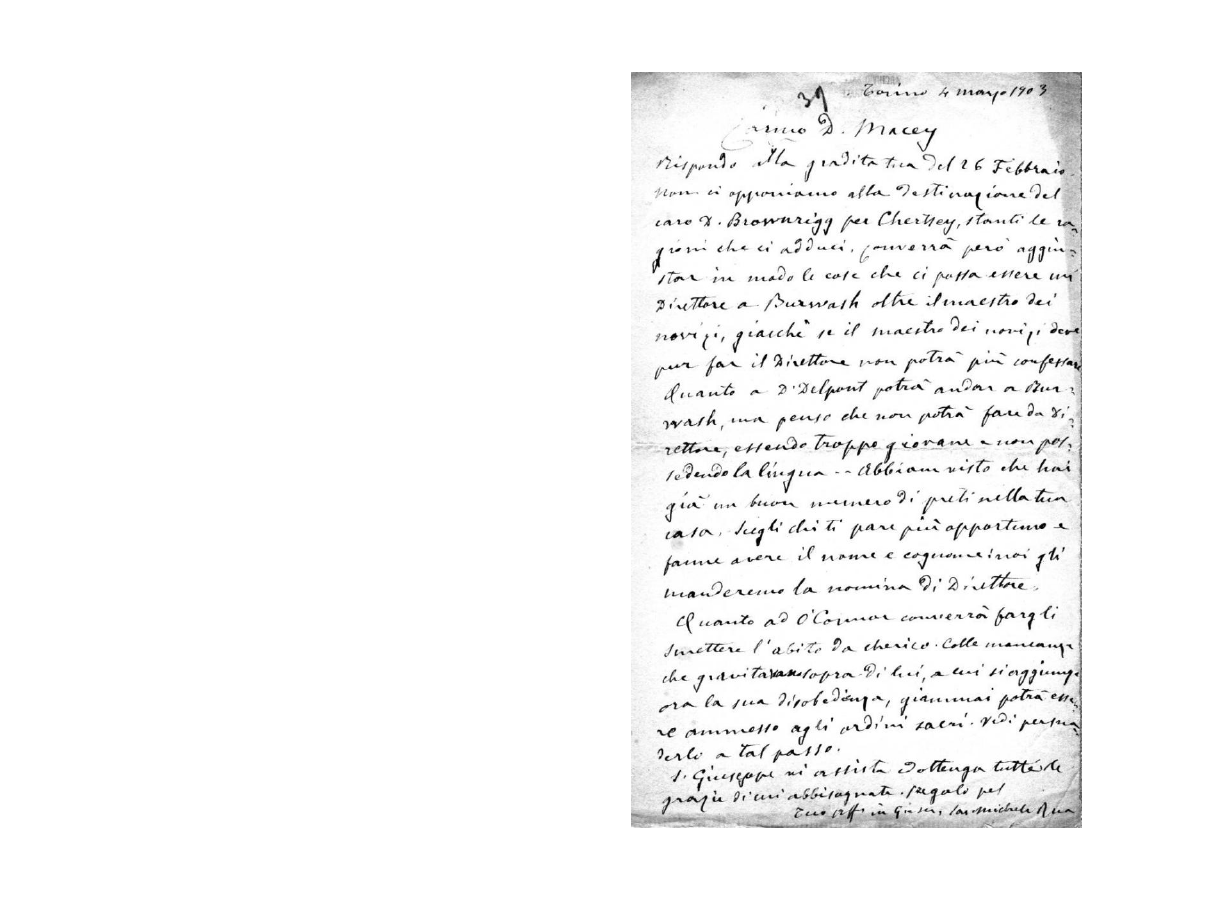 39 Torino 4 marzo 1903
Car.mo D. Macey
Rispondo alla gradita tua del 26 Febbraio
Non ci opponiamo alla destinazione del
caro D. Brownrigg per Chertsey, stanti le ra=
gioni che ci adduci. Converrà però aggiu=
star in modo le cose che ci possa essere un
Direttore a Burwash oltre il maestro dei
novizi, giacchè se il maestro dei novizi deve
pur far il Direttore non potrà più confessare
Quanto a D. Delpont potrà andar a Bur=
wash, ma penso che non potrà fare da Di=
rettore, essendo troppo giovane e non pos=
sedendo la lingua -- Abbiam visto che hai
già un buon numero di preti nella tua
casa. Scegli chi ti pare più opportuno e
fanne avere il nome e cognome; noi gli
manderemo la nomina di Direttore.
Quanto ad O'Connor converrà fargli
smettere l'abito da cherico. Colle mancanze
che gravitavano sopra di lui, a cui si aggiunge
ora la sua disobedienza, giammai potrà esse=
re ammesso agli ordini sacri. Vedi persua=
derlo a tal passo.
S. Giuseppe vi assista e ottenga tutte le
grazie di cui abbisognate.
Tuo aff. in G. Sac. Michele Rua